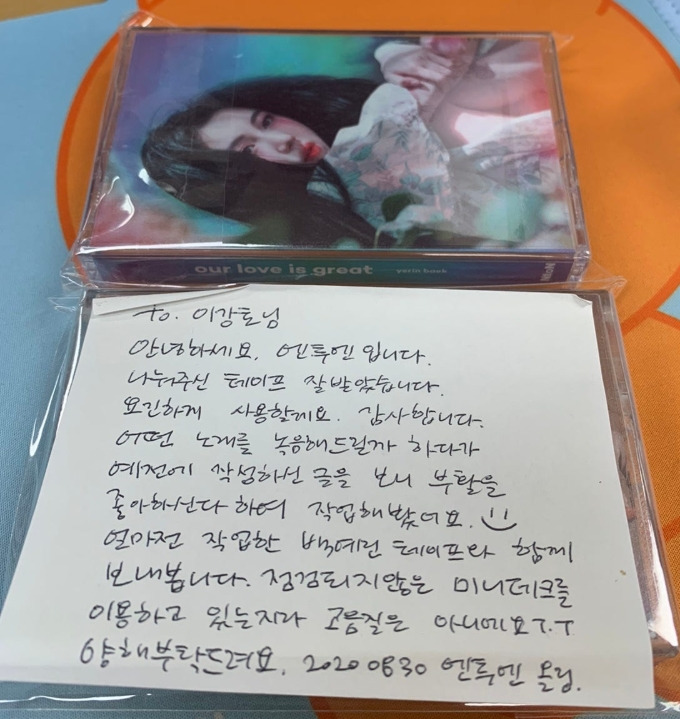 our love is great yerin baek
to. 이강토님
안녕하세요. 엔투엔입니다.
나눠주신 테이프 잘받았습니다.
요긴하게 사용할게요. 감사합니다.
어떤 노래를 녹음해드릴까 하다가
예전에 작성하신 글을 보니 부탁을
좋아하신다 하여 작업해봤어요.
얼마전 작업한 백예린 테이프와 함께
보내봅니다. 점검되지않은 미니데크를
이용하고 있는지라 고음질은 아니에요T.T
양해부탁드려요. 20200830 엔투엔 올림.